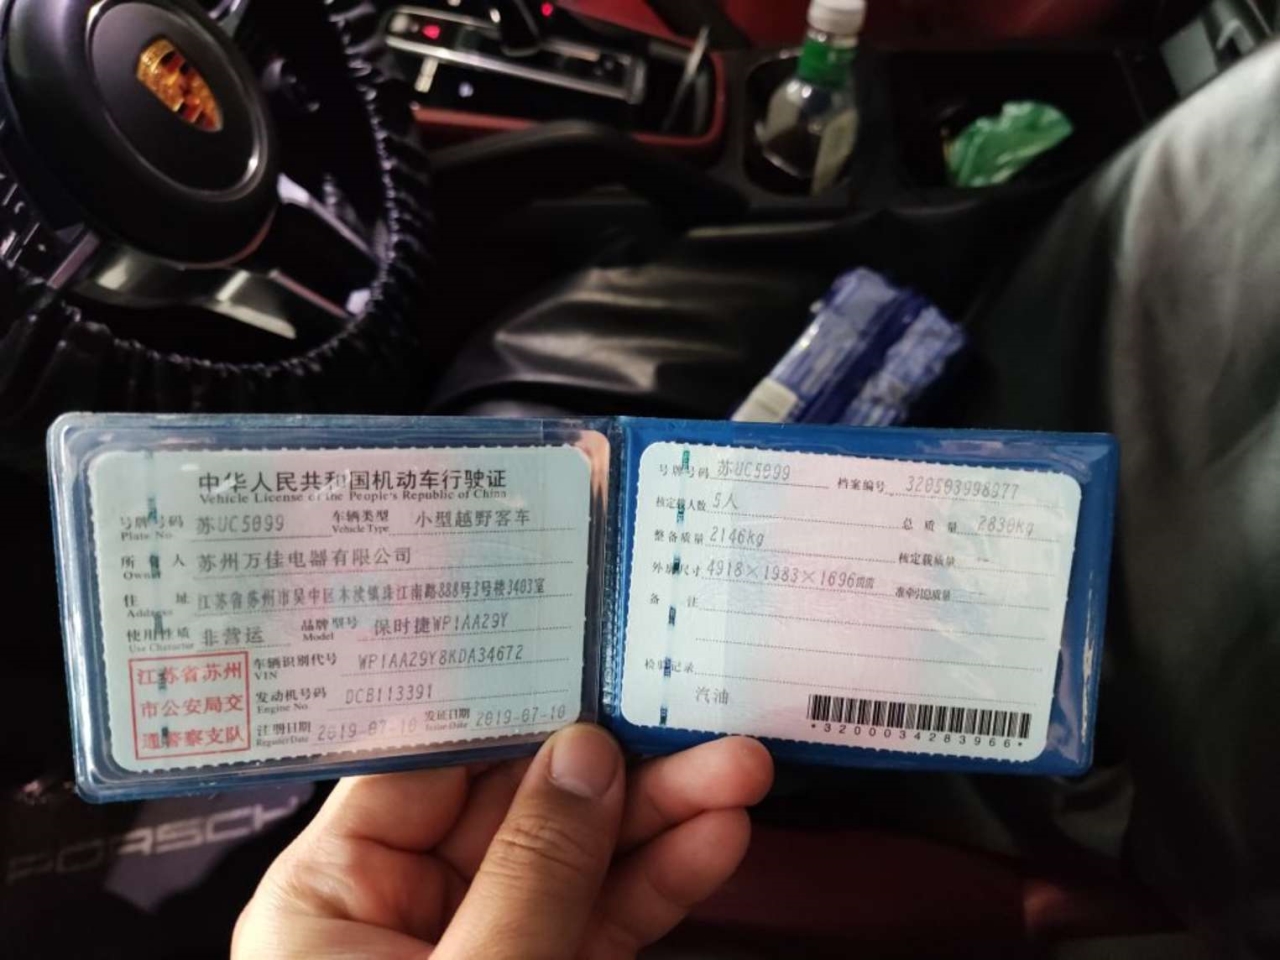 中华人民共和国机动车行驶证
Vehicle License of the People's Republic of China
号牌号码 苏UC5099 车辆类型 小型越野客车
Plate No. Vehicle Type
所有人 苏州万佳电器有限公司
Owner
住址 江苏省苏州市吴中区木渎镇珠江南路888号3号楼3403室
Address
使用性质 非营运 品牌型号 保时捷WP1AA29Y
Use Character Model
江苏省苏州
市公安局交
通警察支队
车辆识别代号 WP1AA29Y8KDA34672
VIN
发动机号码 DCB113391
Engine No.
注册日期 2019-07-10 发证日期 2019-07-10
Register Date Issue Date
号牌号码 苏UC5099 档案编号 320503998977
核定载人数 5人 总质量 2830kg
整备质量 2146kg 核定载质量 --
外廓尺寸 4918×1983×1696mm 准牵引总质量 --
备注
检验记录
汽油
*3200034283966*
PORSCH